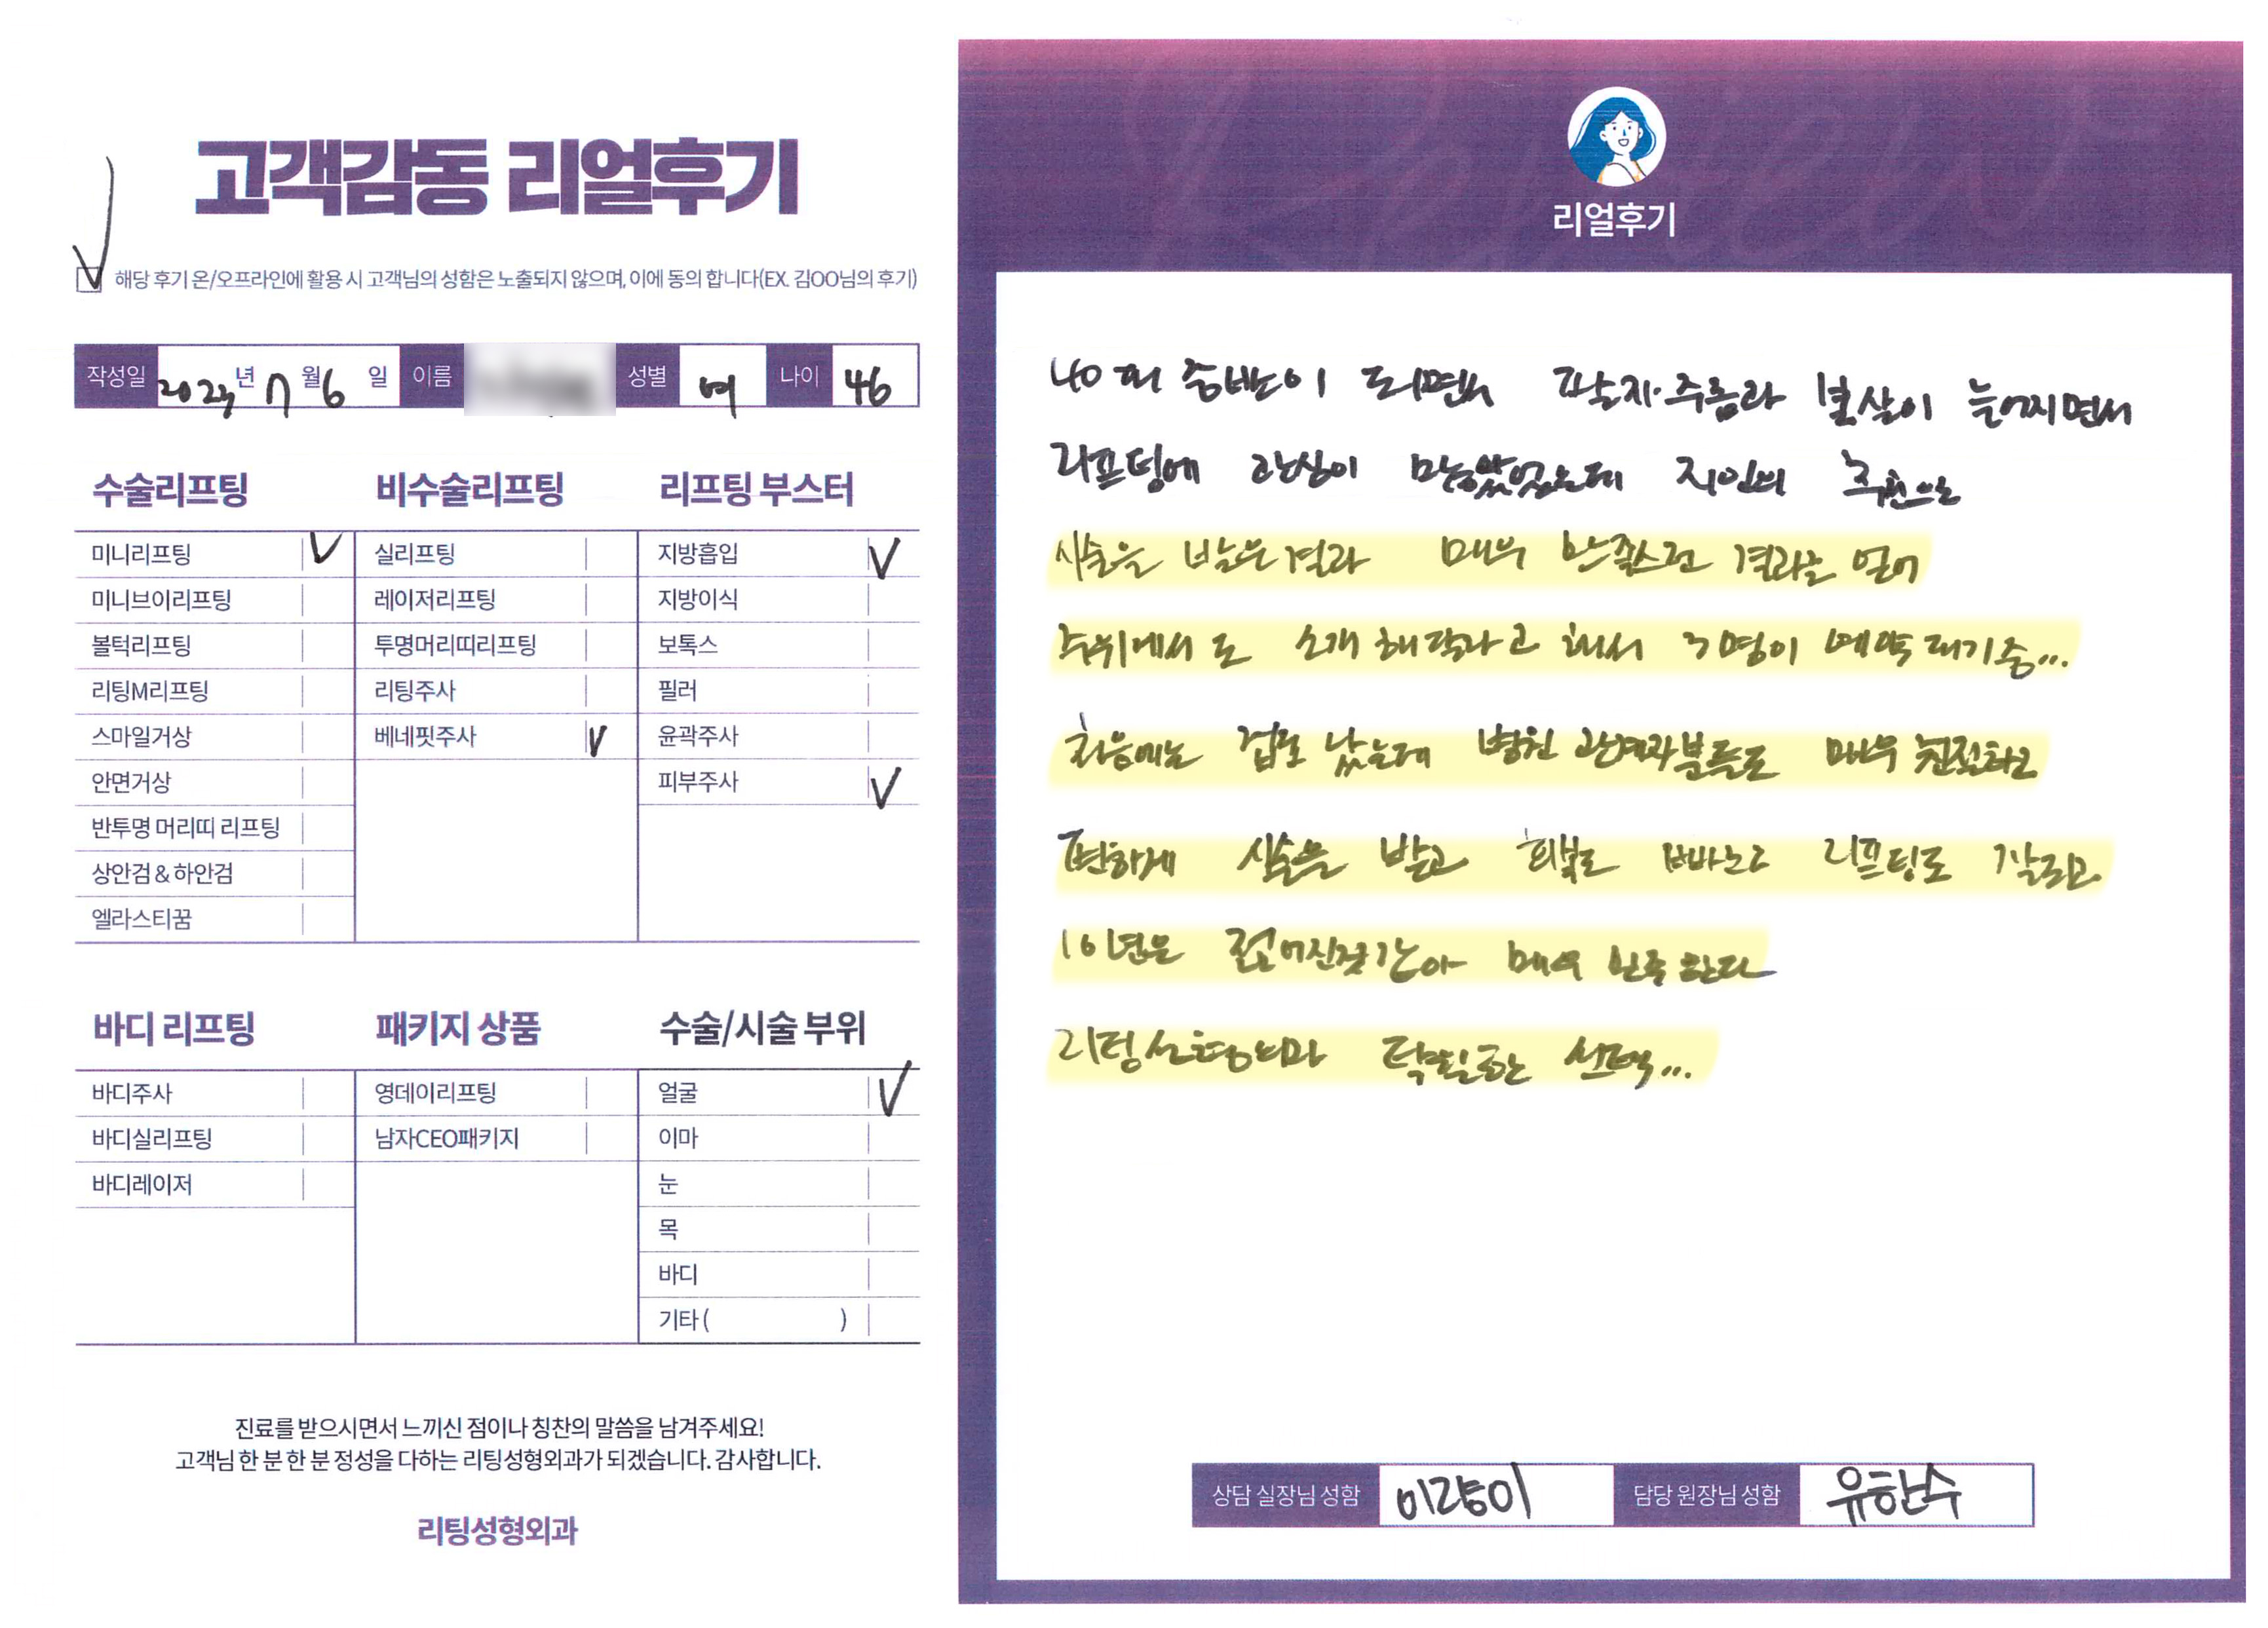 고객감동 리얼후기
해당 후기 온/오프라인에 활용 시 고객님의 성함은 노출되지 않으며, 이에 동의 합니다(EX. 김OO님의 후기)
작성일 2023년 7월 6일 이름 성별 여 나이 46
수술리프팅 비수술리프팅 리프팅 부스터
미니리프팅 실리프팅 지방흡입
미니브이리프팅 레이저리프팅 지방이식
볼턱리프팅 투명머리띠리프팅 보톡스
리팅M리프팅 리팅주사 필러
스마일거상 베네핏주사 윤곽주사
안면거상 피부주사
반투명 머리띠 리프팅
상안검 & 하안검
엘라스티꿈
바디 리프팅 패키지 상품 수술/시술 부위
바디주사 영데이리프팅 얼굴
바디실리프팅 남자CEO패키지 이마
바디레이저 눈
목
바디
기타 ( )
진료를 받으시면서 느끼신 점이나 칭찬의 말씀을 남겨주세요!
고객님 한 분 한 분 정성을 다하는 리팅성형외과가 되겠습니다. 감사합니다.
리팅성형외과
리얼후기
40대 중반이 되면서 팔자.주름과 볼살이 늘어지면서
리프팅에 관심이 지인의 추천으로
시술을 받은결과 매우 만족스런 결과를 얻어
주위에서도 소개 해달라고 해서 3명이 예약 대기중...
처음에는 겁도 났는데 병원 관계자분들도 매우 친절하고
편하게 시술을 받고 회복도 빠르고 리프팅도 잘되고
10년은 젊어진것같아 매우 만족 한다
리팅성형외과 탁월한 선택...
상담 실장님 성함 담당 원장님 성함 유한수